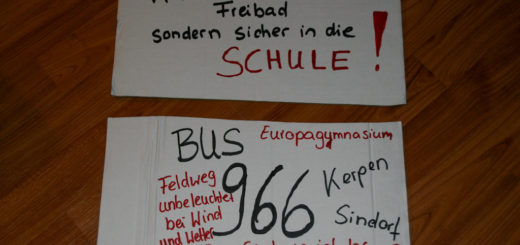 Freibad
sondern sicher in die
SCHULE!
BUS
Europagymnasium
966
Feldweg
unbeleuchtet
bei Wind
und Wetter
Kerpen
Sindorf